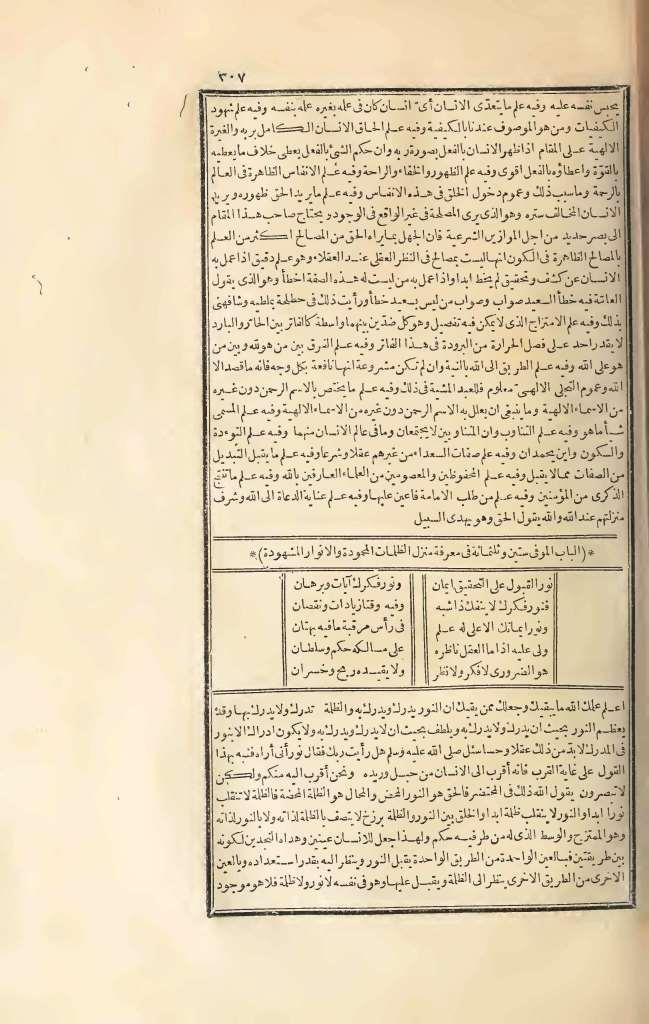 ٣٠٧
يحبس نفسه عليه وفيه علم ما يتعدّى الانسان أىّ انسان كان فى عمله بغيره عمله بنفسه وفيه علم شهود
الكيفيات ومن هو الموصوف عندنا بالكيفية وفيه علم الحاق الانسان الكامل بربه والغيرة
الالهية على المقام اذا ظهر الانسان بالفعل بصورة ربه وان حكم الشئ بالفعل يعطى خلاف ما يعطيه
بالقوّة واعطاؤه بالفعل اقوى وفيه علم الظهور والخفاء والراحة وفيه علم الانفاس الظاهرة فى العالم
بالرحمة وما سبب ذلك وعموم دخول الخلق فى هذه الانفاس وفيه علم ما يريد الحق ظهوره ويريد
الانسان المخالف ستره وهو الذى يرى المصلحة فى غير الواقع فى الوجود ويحتاج صاحب هذا المقام
الى بصر حديد من اجل الموازين الشرعية فان الجهل بما يراه الحق من المصالح اكثر من العلم
بالمصالح الظاهرة فى الكون انها ليست بمصالح فى النظر العقلى عند العقلاء وهو علم دقيق اذا عمل به
الانسان عن كشف وتحقيق لم يخط ابدا واذا عمل به من ليست له هذه الصفة اخطأ وهو الذى يقول
العامّة فيه خطأ السعيد صواب وصواب من ليس بسعيد خطأ ورأيت ذلك فى حطلحة بملطيه وشافهنى
بذلك وفيه علم الامتزاج الذى لا يمكن فيه تفصيل وهو كل ضدّين بينهما واسطة كالفاتر بين الحارّ والبارد
لا يقدر احد على فصل الحرارة من البرودة فى هذا الفاتر وفيه علم الفرق بين من هو لله وبين من
هو على الله وفيه علم الطريق الى الله بالنية وان لم تكن مشروعة انها نافعة بكل وجه فانه ما قصد الا
الله وعموم التجلى الالهىّ معلوم فللعبد المشية فى ذلك وفيه علم ما يختص بالاسم الرحمن دون غيره
من الاسماء الالهية وما ينبغى ان يعلل به الاسم الرحمن دون غيره من الاسماء الالهية وفيه علم المسمى
شيأ ما هو وفيه علم التناوب وان المتناوبين لا يجتمعان وما فى عالم الانسان منهما وفيه علم التؤدة
والسكون واين يحمدان وفيه علم صفات السعداء من غيرهم عقلا وشرعا وفيه علم ما يقبل التبديل
من الصفات مما لا يقبل وفيه علم المحفوظين والمعصومين من العلماء العارفين بالله وفيه علم ما تنتج
الذكرى من المؤمنين وفيه علم من طلب الامامة فاعين عليها وفيه علم عناية الدعاة الى الله وشرف
منزلتهم عند الله والله يقول الحق وهو يهدى السبيل
* (الباب الموفى ستين وثلثمائة فى معرفة منزل الظلمات المحمودة والانوار المشهودة) *
نور القبول على التحقيق ايمان ونور فكرك آيات وبرهان
فنور فكرك لا ينفك ذا شبه وفيه وقتا زيادات ونقصان
ونور ايمانك الاعلى له علم فى رأس مرقبة ما فيه بهتان
ولى عليه اذا ما العقل ناظره على مسالكه حكم وسلطان
هو الضرورى لا فكر ولا نظر ولا يقيده ربح وخسران
اعلم علمك الله ما يبقيك وجعلك ممن يقيك ان النور يدرك ويدرك به والظلمة تدرك ولا يدرك بها وقد
يعظم النور بحيث ان يدرك ولا يدرك به ويلطف بحيث ان لا يدرك ويدرك به ولا يكون ادراك الا بنور
فى المدرك لا بد من ذلك عقلا وحسا سئل صلى الله عليه وسلم هل رأيت ربك فقال نور أنى أراه فنبه بهذا
القول على غاية القرب فانه أقرب الى الانسان من حبل وريده ونحن أقرب اليه منكم ولكن
لا تبصرون يقول الله ذلك فى المحتضر فالحق هو النور المحض والمحال هو الظلمة المحضة فالظلمة لا تنقلب
نورا ابدا والنور لا ينقلب ظلمة ابدا والخلق بين النور والظلمة برزخ لا يتصف بالظلمة لذاته ولا بالنور لذاته
وهو الممتزج والوسط الذى له من طرفيه حكم ولهذا جعل للانسان عينين وهداه النجدين لكونه
بين طريقتين فبالعين الواحدة من الطريق الواحدة يقبل النور وينظر اليه بقدر استعداده وبالعين
الاخرى من الطريق الاخرى ينظر الى الظلمة ويقبل عليها وهو فى نفسه لا نور ولا ظلمة فلا هو موجود